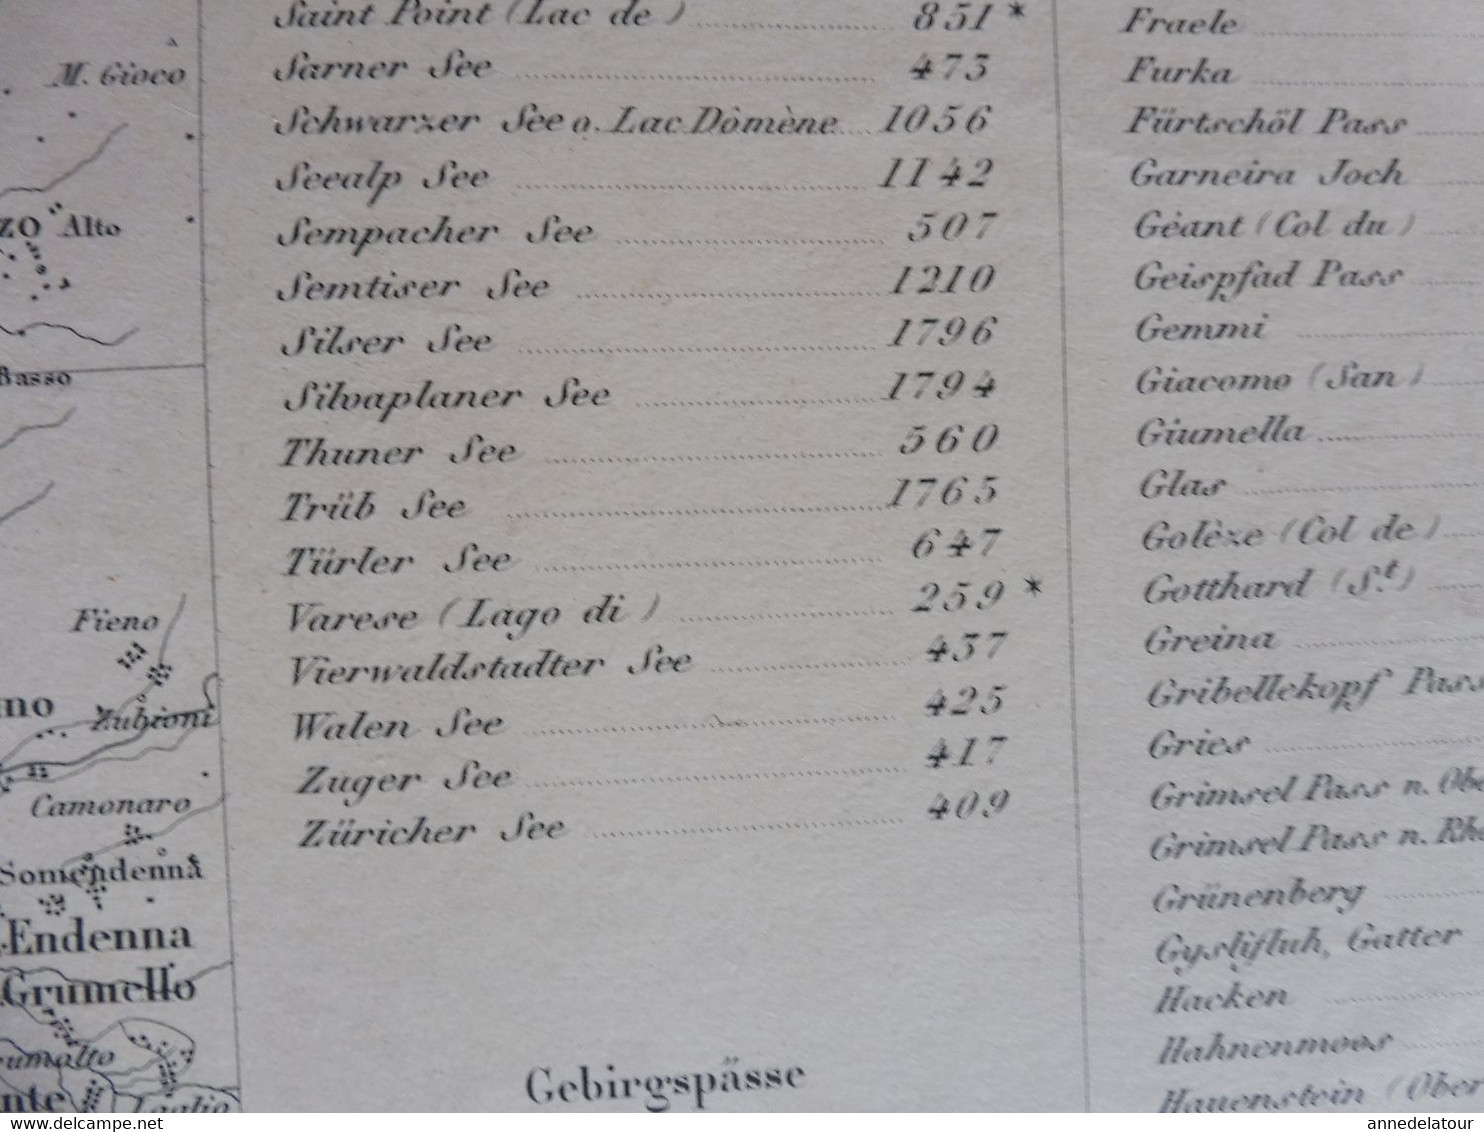 M. Gioco
ZO Alto
Basso
Fieno
Zubioni
Camonaro
Somendenna
Endenna
Grumello
Saint Point (Lac de) 851 *
Sarner See 473
Schwarzer See o. Lac Dômène 1056
Seealp See 1142
Sempacher See 507
Semtiser See 1210
Silser See 1796
Silvaplaner See 1794
Thuner See 560
Trüb See 1765
Türler See 647
Varese (Lago di) 259 *
Vierwaldstadter See 437
Walen See 425
Zuger See 417
Züricher See 409
Gebirgspässe
Fraele
Furka
Fürtschöl Pass
Garneira Joch
Géant (Col du)
Geispfad Pass
Gemmi
Giacomo (San)
Giumella
Glas
Golèze (Col de)
Gotthard (St.)
Greina
Gribellekopf Pass
Gries
Grimsel Pass n. Obe
Grimsel Pass n. Rh
Grünenberg
Gyslifluh, Gatter
Hacken
Hahnenmoos
Hauenstein (Ober
Delcampe.net
annedelatour